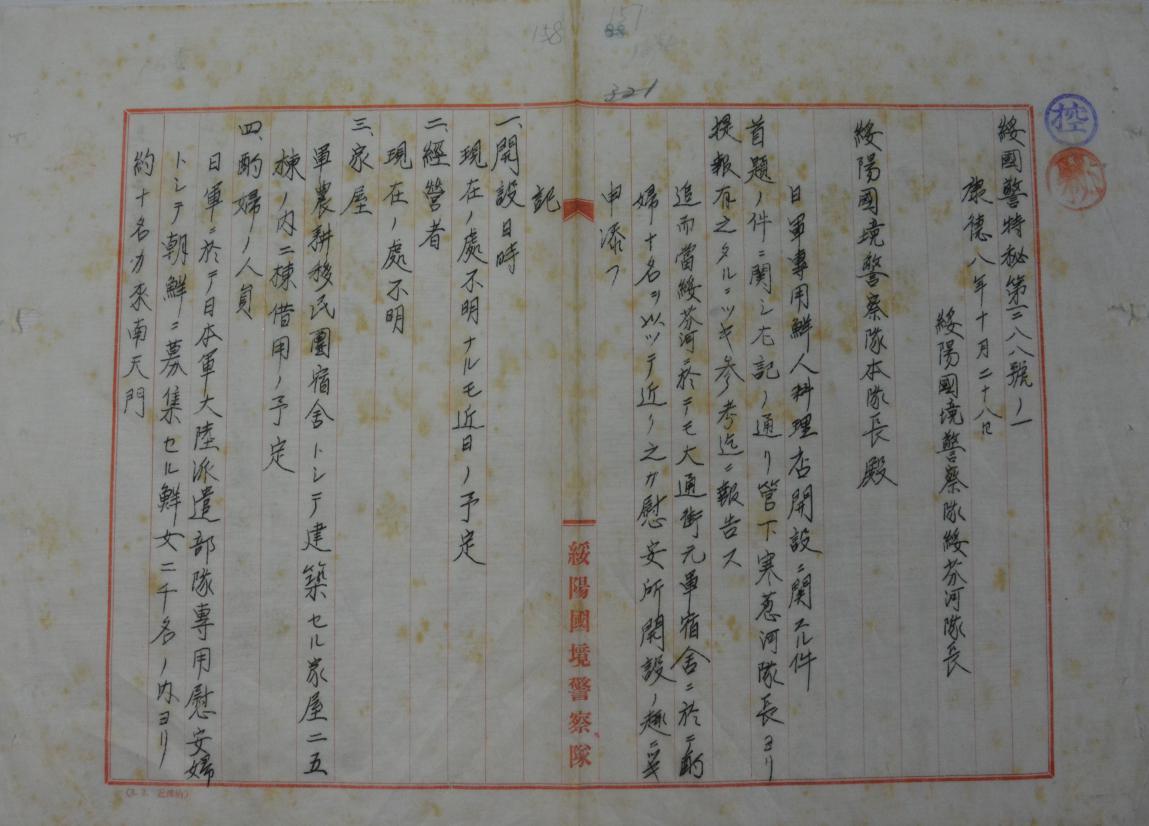 158
157
321
控
綏國警特秘第二八八號ノ一
康德八年十月二十八日
綏陽國境警察隊綏芬河隊長
綏陽國境警察隊本隊長殿
日軍專用鮮人料理店開設ニ関スル件
首題ノ件ニ関シ左記ノ通リ管下寒葱河隊長ヨリ
提報有之タルニツキ参考迄ニ報告ス
追而當綏芬河ニ於テモ大通街元軍宿舍ニ於テ酌
婦十名ヲ以ッテ近ク之カ慰安所開設ノ趣ニ
申添フ
記
一、開設日時
現在ノ處不明ナルモ近日ノ予定
二、經營者
現在ノ處不明
三、家屋
軍農耕移民團宿舍トシテ建築セル家屋二五
棟ノ内二棟借用ノ予定
四、酌婦ノ人員
日軍ニ於テ日本軍大陸派遣部隊專用慰安婦
トシテ朝鮮ニ募集セル鮮女二千名ノ内ヨリ
約十名カ来南天門
綏陽國境警察隊